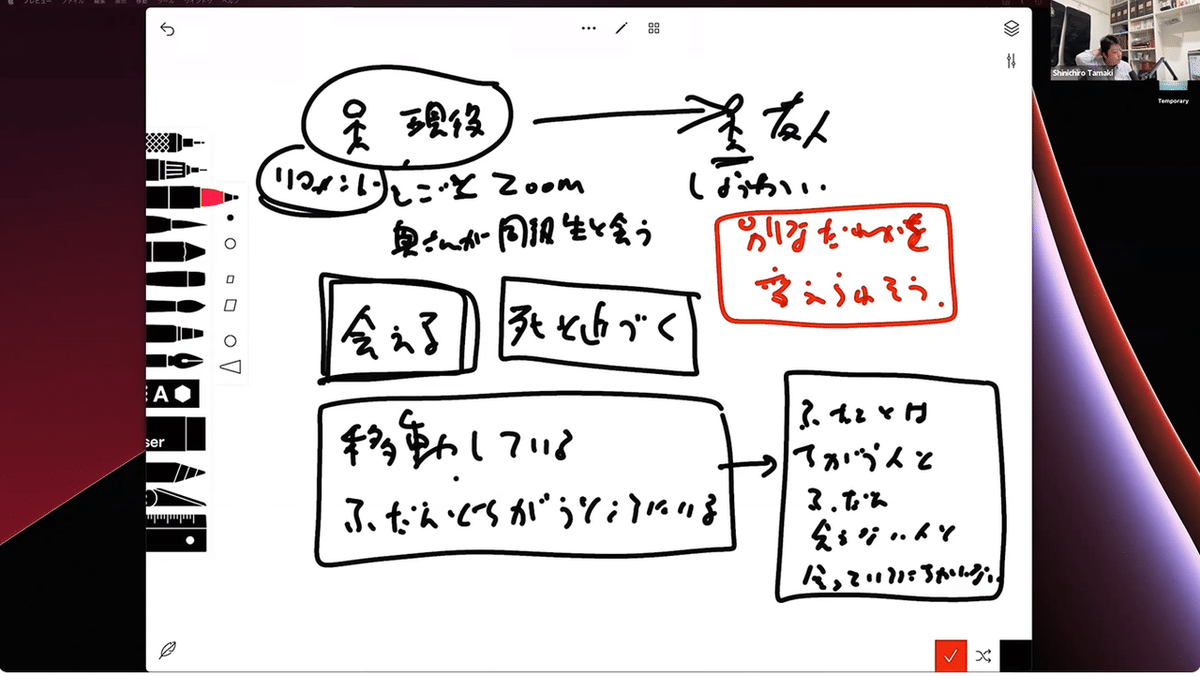 プレビュー ファイル 編集 表示 移動 ツール ウインドウ ヘルプ
Shinichiro Tamaki
Temporary
現役
友人
しごとZoom
奥さんが同級生と会う
別なだれかを
変えられそう.
会える
死と近づく
移動している
ふだんとちがうところにいる
ちがう人と
ふだん
会えない人と
会っているにちがいない
A
ser